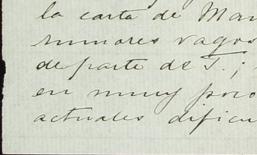 la carta de Mar
rumores vagos
de parte de T;
en muy poco
actuales dificu